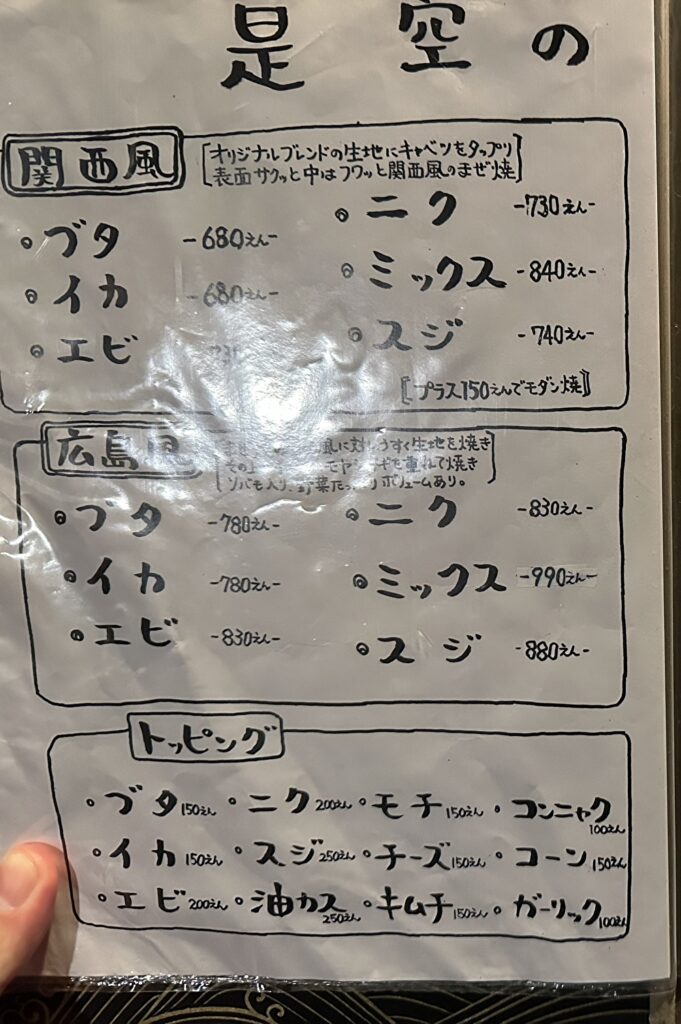 是空の
関西風
[オリジナルブレンドの生地にキャベツをタップリ
表面サクッと中はフワッと関西風のまぜ焼]
ブタ -680えん-
イカ -680えん-
エビ
ニク -730えん-
ミックス -840えん-
スジ -740えん-
[プラス150えんでモダン焼]
広島
風に対しうすく生地を焼き
重ねて焼き
ボリュームあり。
ブタ -780えん-
イカ -780えん-
エビ -830えん-
ニク -830えん-
ミックス -990えん-
スジ -880えん-
トッピング
・ブタ150えん ・ニク200えん ・モチ150えん ・コンニャク100えん
・イカ150えん ・スジ250えん ・チーズ150えん ・コーン150えん
・エビ200えん ・油カス250えん ・キムチ150えん ・ガーリック100えん